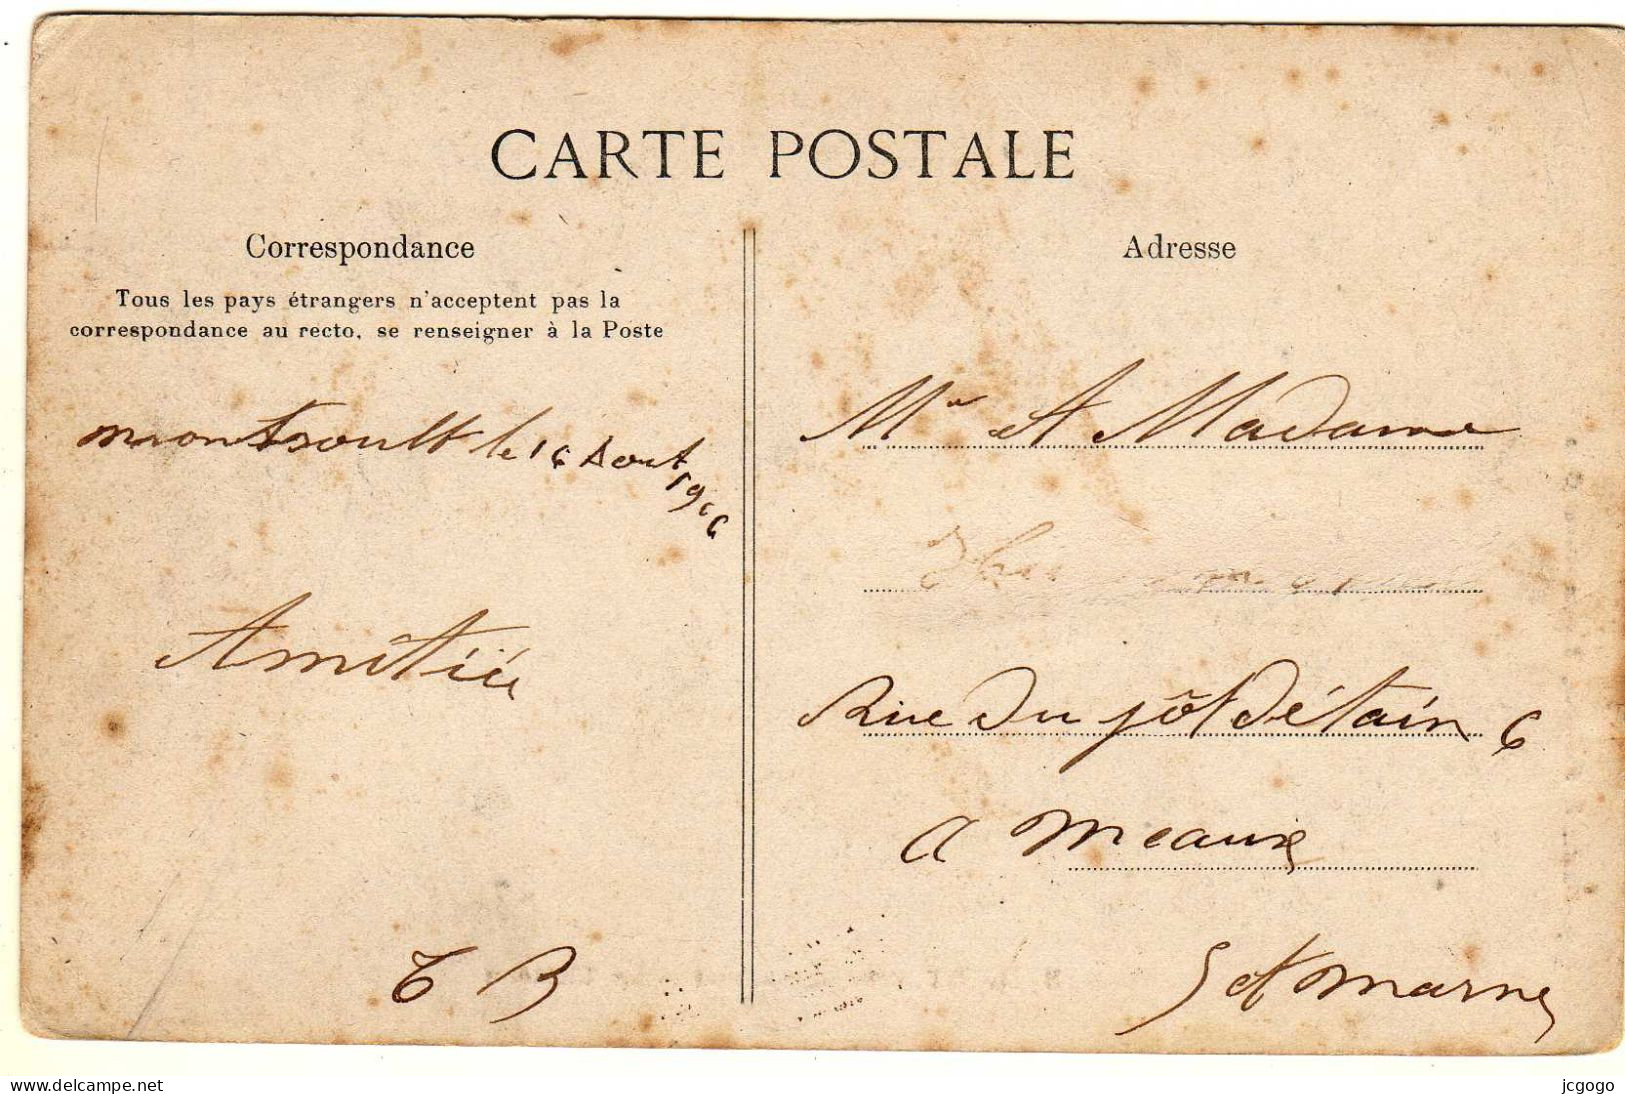 CARTE POSTALE
Correspondance
Tous les pays étrangers n'acceptent pas la
correspondance au recto, se renseigner à la Poste
montsoult le 16 Aout
1906
Amitiée
T B
Adresse
Mr et Madame
Rue Du pôt d'étain 6
a meaux
S et marne
www.delcampe.net
jcgogo